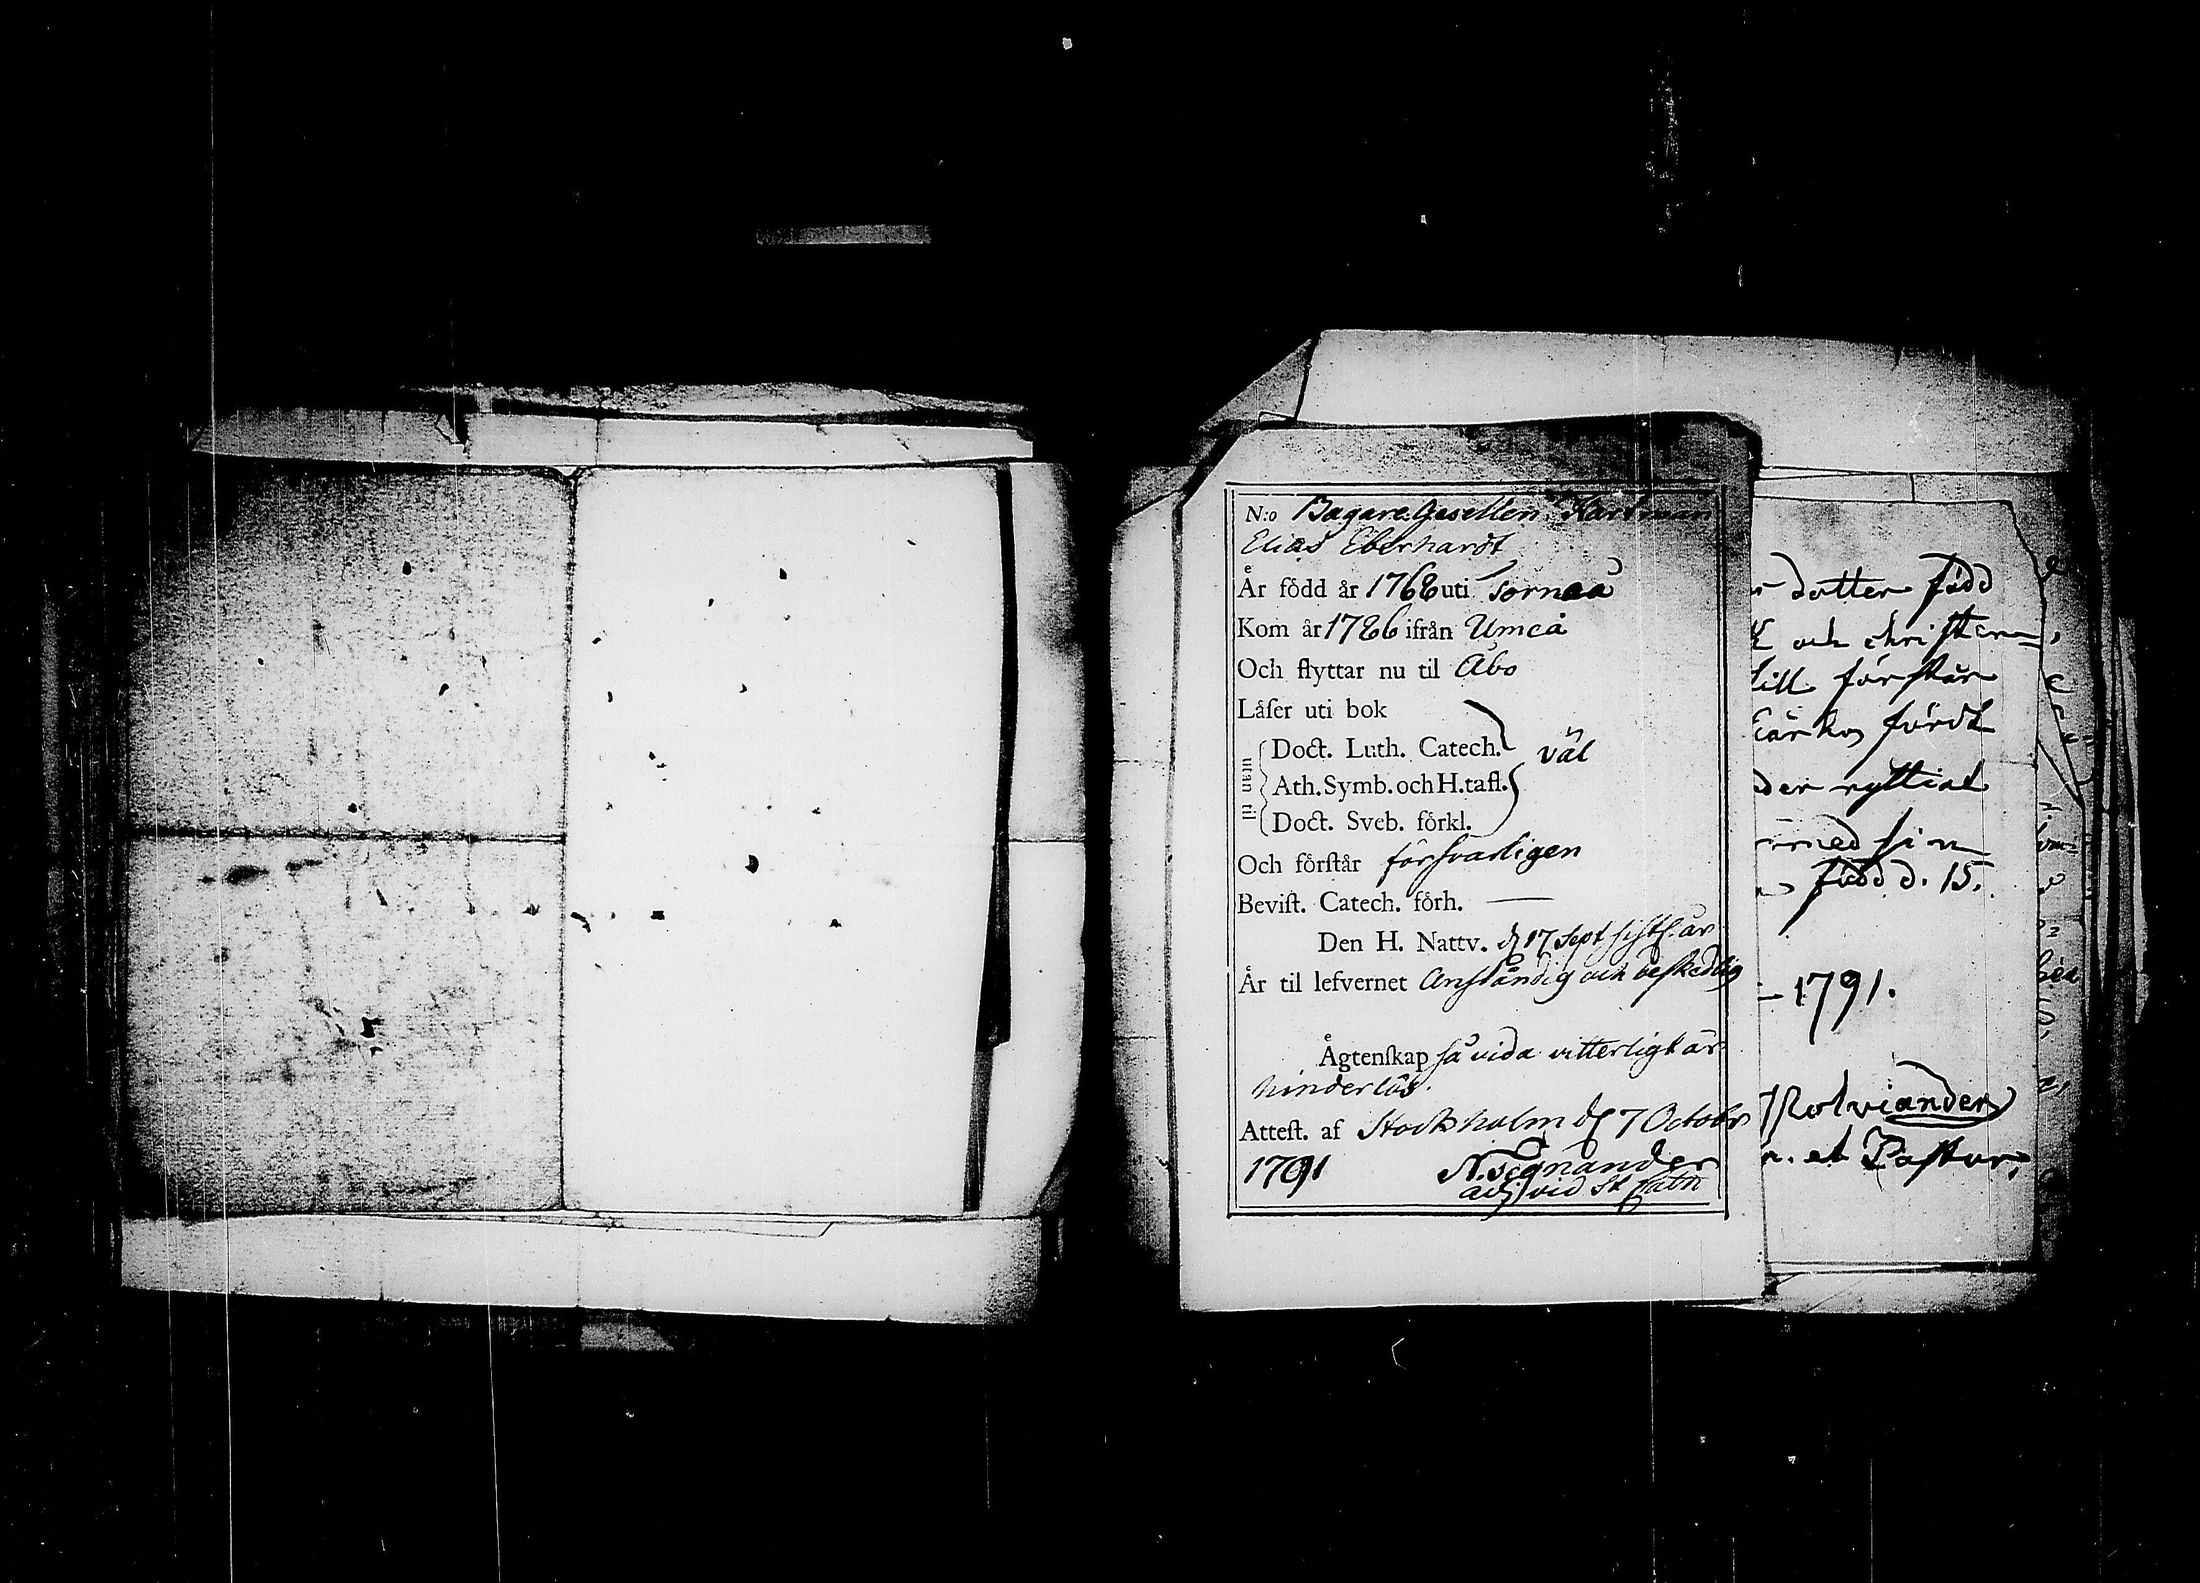 N:o Bagare Gesellen Hartman
Elias Eberhardt
År född år 1768 uti Torneå
Kom år 1786 ifrån Umeå
Och flyttar nu til Åbo
Låſer uti bok
utan til
Doct. Luth. Catech.
väl
Ath. Symb. och H. tafl.
Doct. Sveb. förkl.
Och förſtår förſvarligen
Beviſt. Catech. förh. —
Den H. Nattv. d 17 Sept ſiſtl. år
År til lefvernet Anſtändig och beſkedlig
Ägtenſkap ſå vida vitterligt är
hinderlös.
Atteſt. af Stockholm d 7 Octobr
1791 N. Tegnander
adj vid St Catn
dotter född
och chriſten
till förſtår
fördt
der nyttiat
med ſin
född d. 15.
1791.
Polviander
et Paſtor,